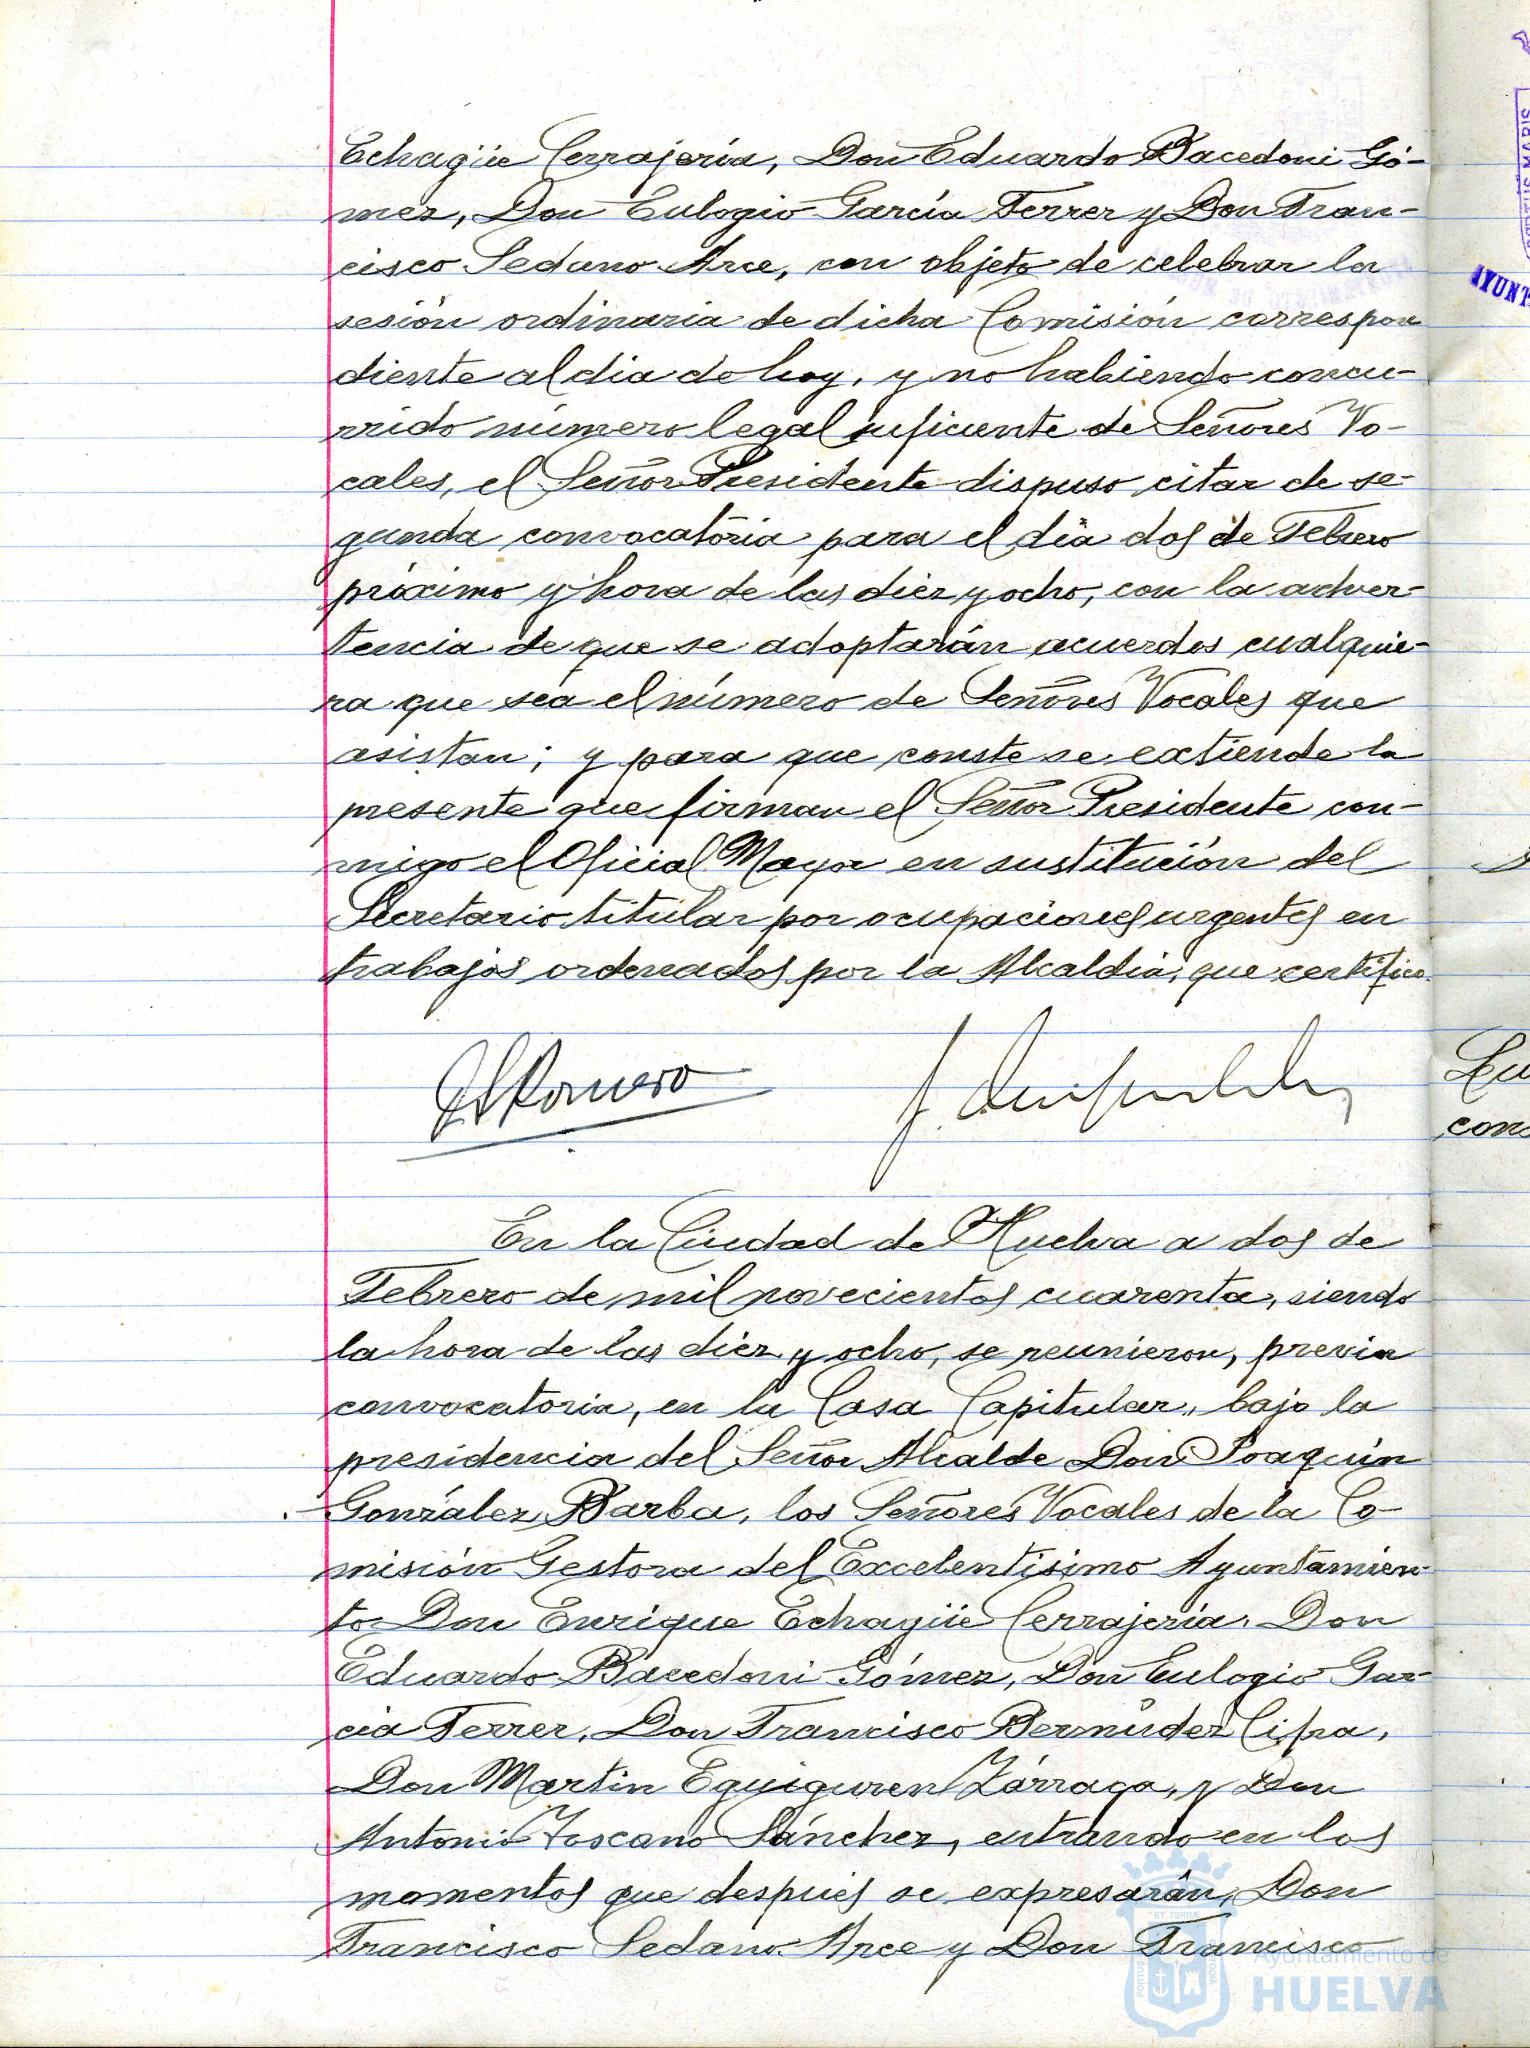 Echagüe Cerrajería, Don Eduardo Bacedoni Gó-
mez, Don Eulogio García Ferrer y Don Fran-
cisco Sedano Arce, con objeto de celebrar la
sesión ordinaria de dicha Comisión correspon
diente al dia de hoy, y no habiendo concu-
rrido número legal suficiente de Señores Vo-
cales, el Señor Presidente dispuso citar de se-
gunda convocatória para el día dos de Febrero
próximo y hora de las diez y ocho, con la adver-
tencia de que se adoptarán acuerdos cualquie-
ra que sea el número de Señores Vocales que
asistan; y para que conste se extiende la
presente que firman el Señor Presidente con-
migo el Oficial Mayor en sustitución del
Secretario titular por ocupaciones urgentes en
trabajos ordenados por la Alcaldía, que certifico.
Romero
En la Ciudad de Huelva a dos de
Febrero de mil novecientos cuarenta, siendo
la hora de las diez y ocho, se reunieron, previa
convocatoria, en la Casa Capitular, bajo la
presidencia del Señor Alcalde Don Joaquín
González Barba, los Señores Vocales de la Co-
misión Gestora del Excelentísimo Ayuntamien-
to Don Enrique Echagüe Cerrajería, Don
Eduardo Bacedoni Gómez, Don Eulogio Gar-
cía Ferrer, Don Francisco Bermúdez Cipra,
Don Martín Eguiguren Zárraga, y Don
Antonio Toscano Sánchez, entrando en los
momentos que después se expresarán, Don
Francisco Sedano Arce y Don Francisco
Ayuntamiento de
HUELVA